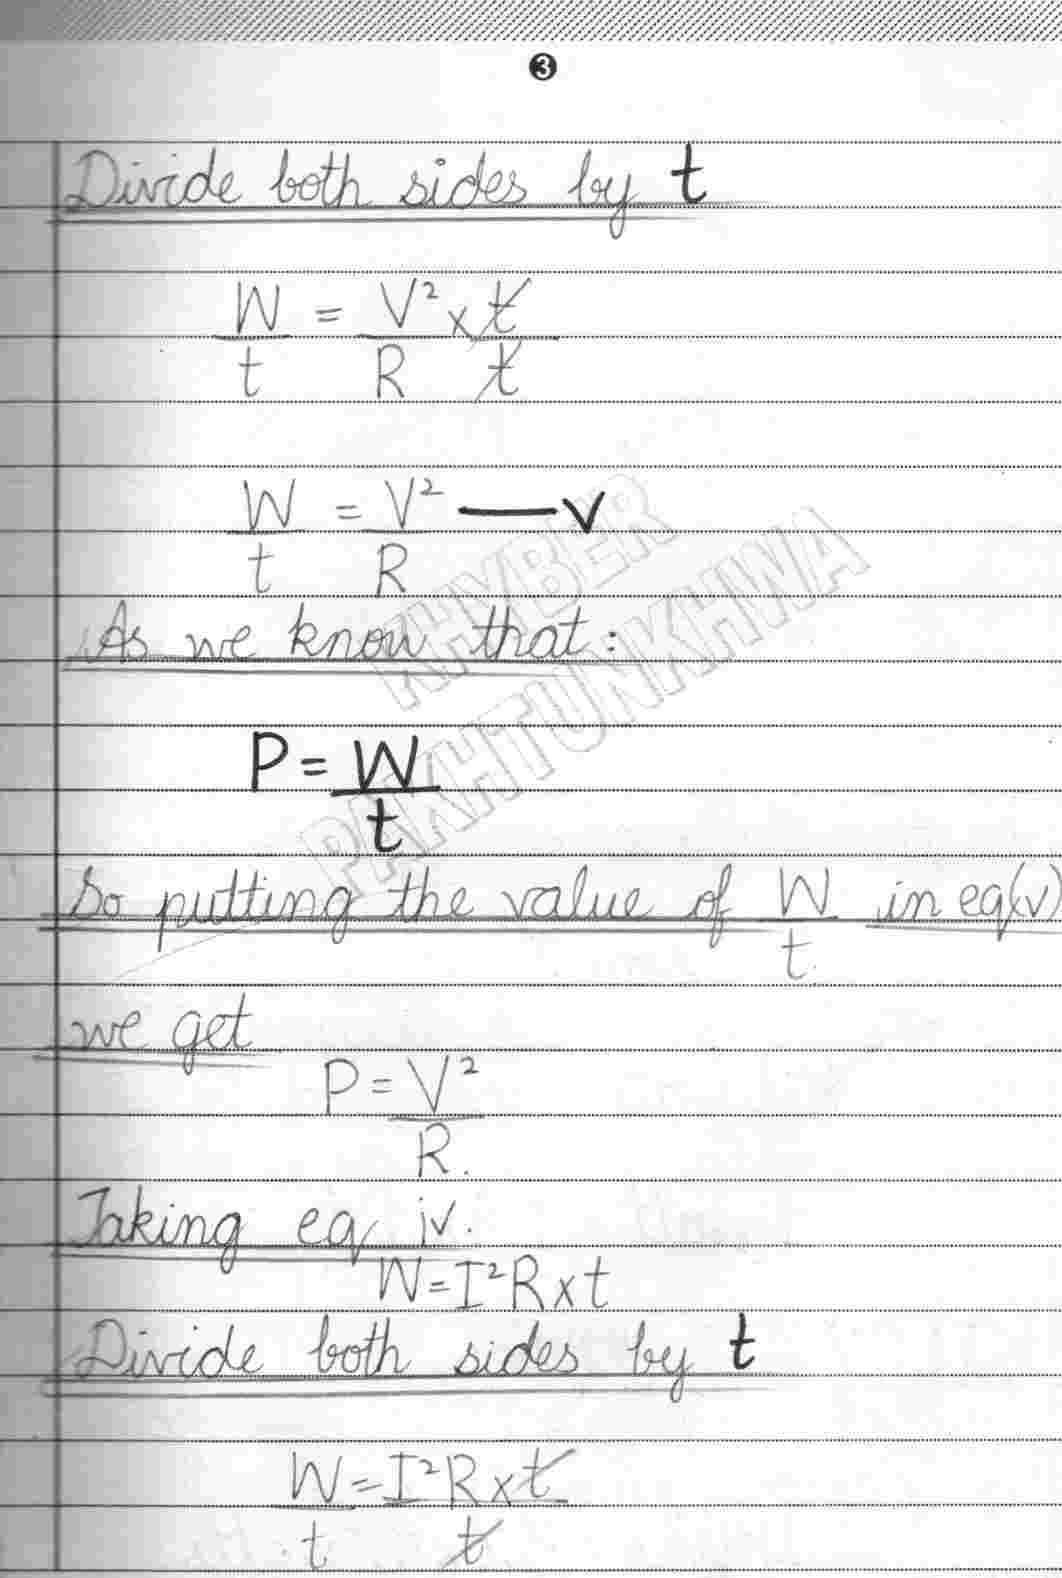 3
Divide both sides by t
W/t = V²/R × t/t
W/t = V²/R — v
KHYBER
PAKHTUNKHWA
As we know that:
P = W/t
So putting the value of W/t in eq(v)
we get
P = V²/R.
Taking eq iv.
W = I²R × t
Divide both sides by t
W/t = I²R × t/t